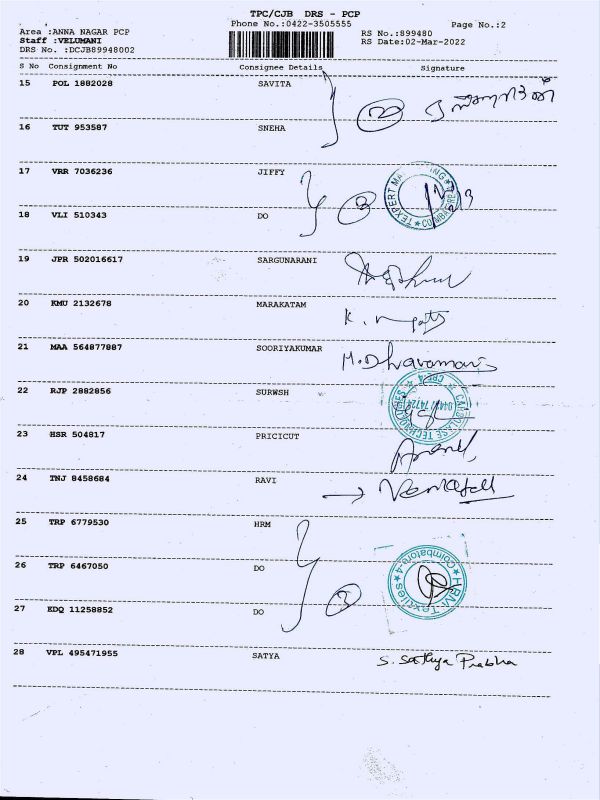 TPC/CJB DRS - PCP
Phone No.:0422-3505555 Page No.:2
Area :ANNA NAGAR PCP RS No.:899480
Staff :VELUMANI RS Date:02-Mar-2022
DRS No. :DCJB89948002
S No Consignment No Consignee Details Signature
15 POL 1882028 SAVITA
16 TUT 953587 SNEHA
17 VRR 7036236 JIFFY
18 VLI 510343 DO
19 JPR 502016617 SARGUNARANI
20 KMU 2132678 MARAKATAM
21 MAA 564877887 SOORIYAKUMAR M.Dhavamani
22 RJP 2882856 SURWSH
23 HSR 504817 PRICICUT Anand
24 TNJ 8458684 RAVI
25 TRP 6779530 HRM
26 TRP 6467050 DO
HRM Textiles Coimbatore-4
27 EDQ 11258852 DO
28 VPL 495471955 SATYA S. Sathya Prabha